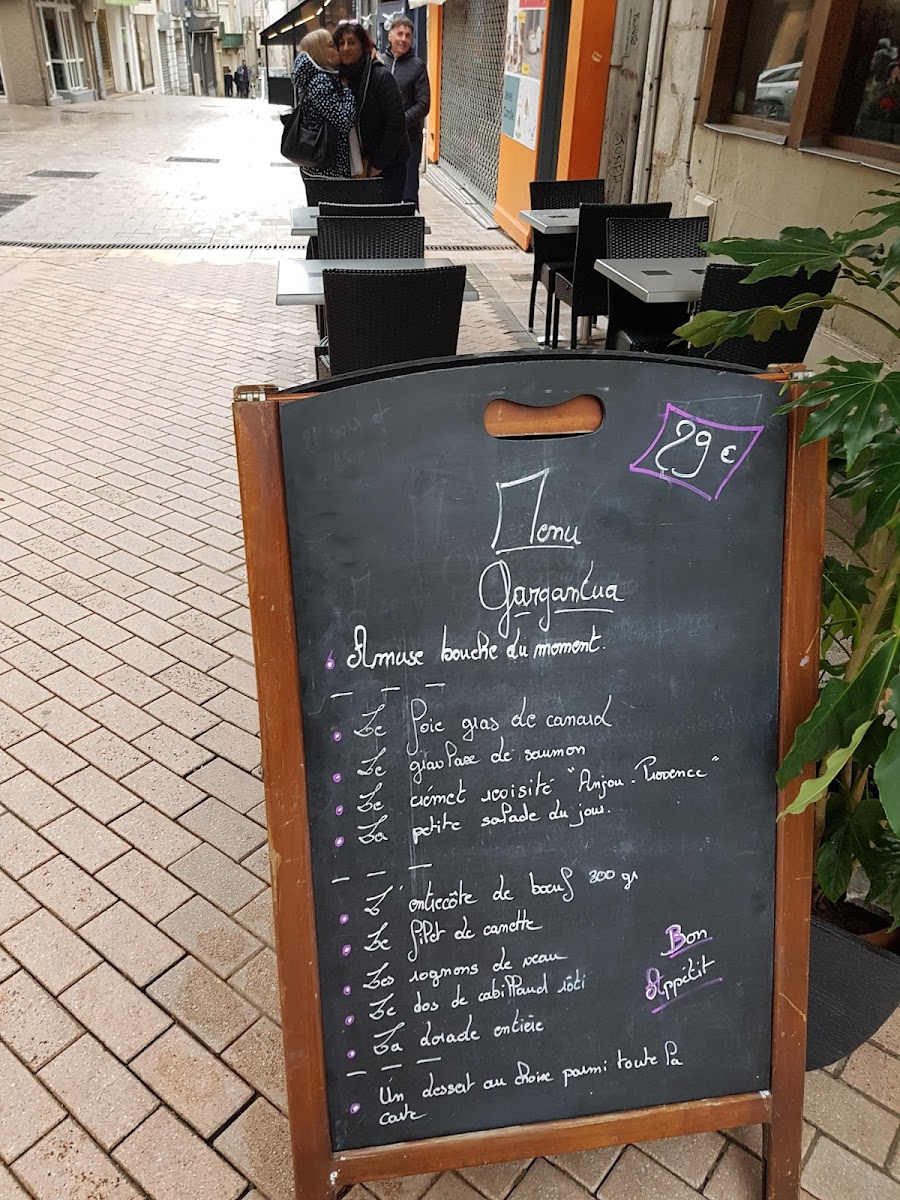 29 €
Menu
Gargantua
Amuse bouche du moment.
Le foie gras de canard
Le gravlaxe de saumon
Le crémet revisité "Anjou-Provence"
La petite salade du jour.
L'entrecôte de bœuf 300 gr
Le filet de canette
Les rognons de veau
Le dos de cabillaud rôti
La dorade entière
Bon
Appétit
Un dessert au choix parmi toute la
carte